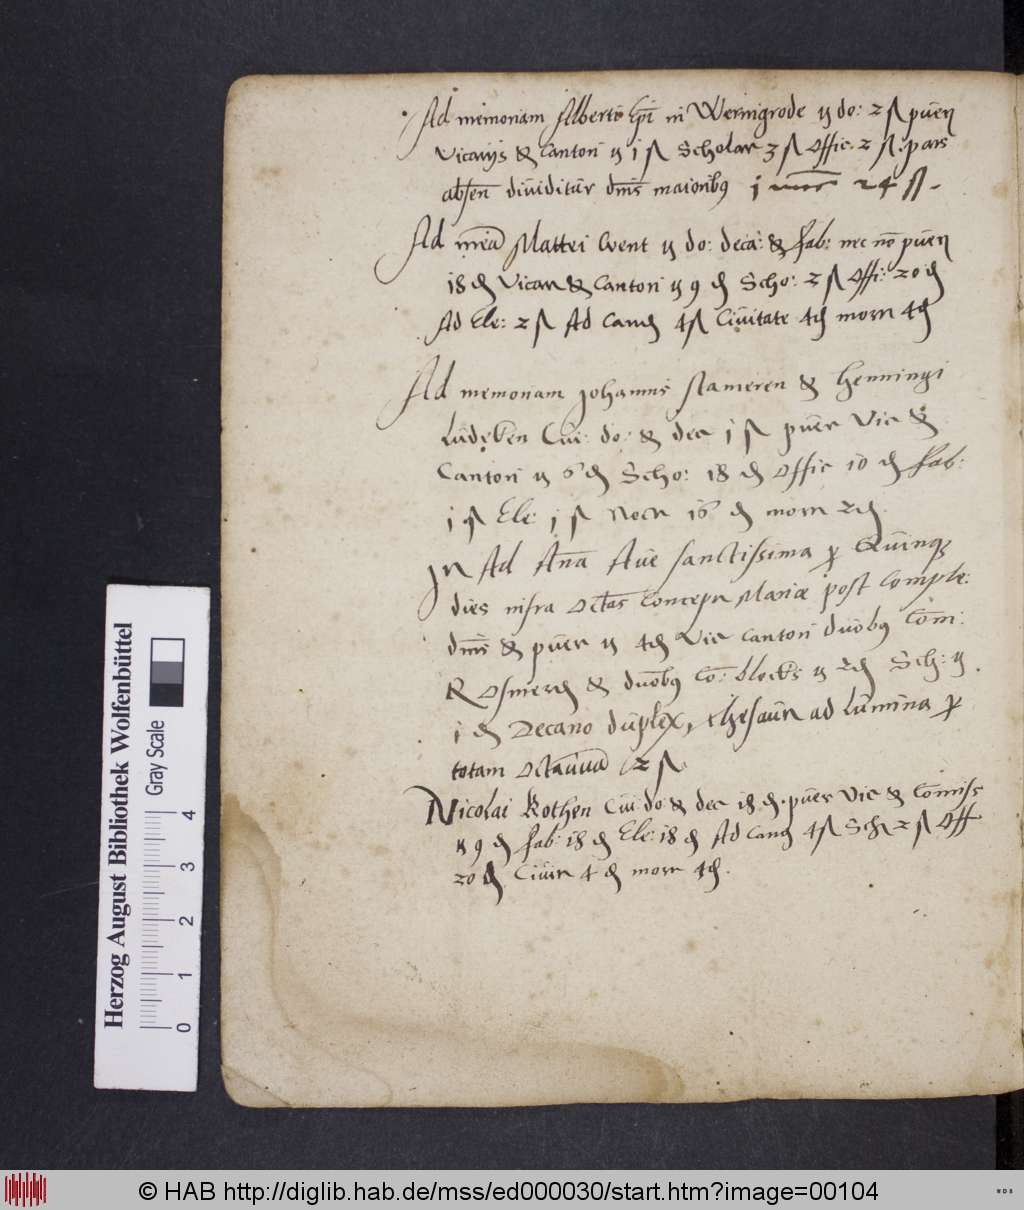 Ad memoriam Alberti Epi in Wernigrode ɥ do: 2 ſ pueri
Vicarijs & Cantori ɥ i ſ Scholar 3 ſ Offic: 2 ſ. pars
absen diuiditur dnis maioribq 24 ſ.
Ad meā Mattei Went ɥ do: deca: & fab: nec nō pueri
18 ₰ Vicar & Cantori ɥ 9 ₰ Scho: 2 ſ Offi: 20 ₰
Ad Ele: 2 ſ Ad Cand 4 ſ Ciuitate 4 ₰ morn 4 ₰
Ad memoriam Johannis Stameren & Henningi
Ludeken Cui: do: & dec j ſ puer Vic &
Cantori ɥ 6 ₰ Scho: 18 ₰ Offic 10 ₰ Fab:
j ſ Ele: j ſ 16 ₰ morn 2 ₰
In Ad Ana Aue sanctissima Quinq
dies infra Octas Concepn Mariæ post Comple:
dnis & puer ɥ 4 ₰ Vic Cantori duobq Com:
& duobq Co: blocks ɥ 2 ₰ Sch: ɥ
i ₰ Decano duplex, thesaur ad lumina
totam Octauuā 2 ſ
Nicolai Rothen Cui do & dec 18 ₰. puer Vic & Comiss
ɥ 9 ₰ fab: 18 ₰ Ele: 18 ₰ Ad Cand 4 ſ Sch 2 ſ Off
20 ₰ Ciuit 4 ₰ morn 4 ₰.
Herzog August Bibliothek Wolfenbüttel
Gray Scale
0 1 2 3 4
© HAB http://diglib.hab.de/mss/ed000030/start.htm?image=00104